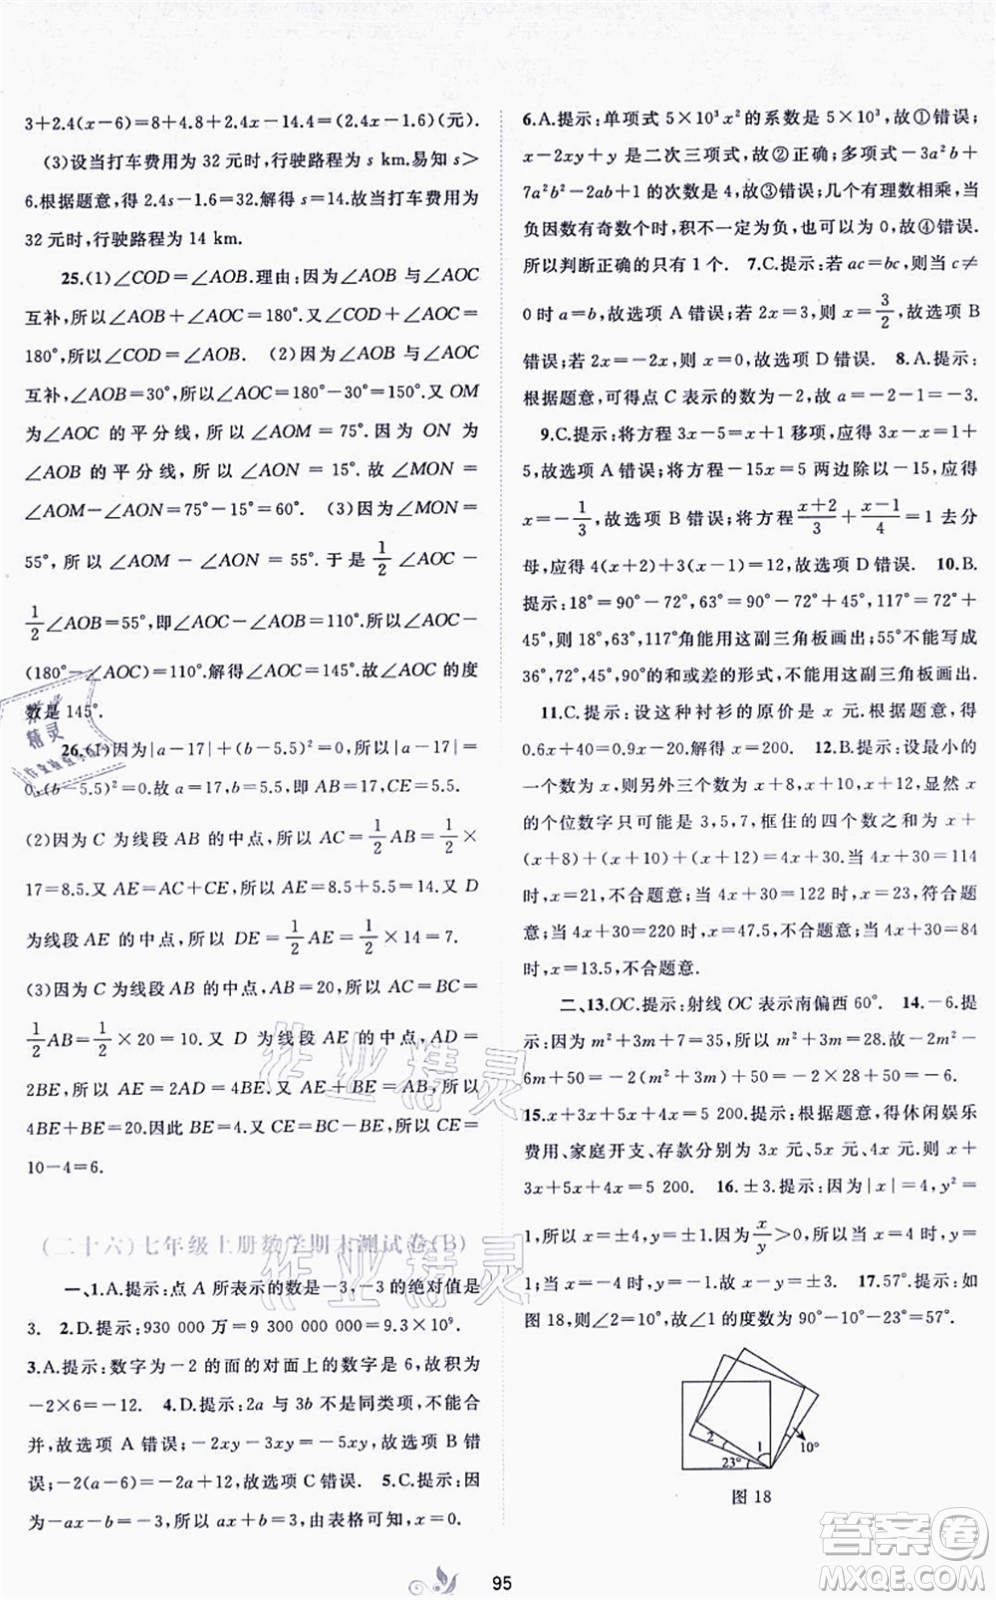 3+2.4(x-6)=8+4.8+2.4x-14.4=(2.4x-1.6)(元).
(3)设当打车费用为 32 元时,行驶路程为 s km.易知 s>
6.根据题意,得 2.4s-1.6=32.解得 s=14.故当打车费用为
32 元时,行驶路程为 14 km.
25.(1)∠COD=∠AOB.理由:因为∠AOB 与∠AOC
互补,所以∠AOB+∠AOC=180°.又∠COD+∠AOC=
180°,所以∠COD=∠AOB. (2)因为∠AOB 与∠AOC
互补,∠AOB=30°,所以∠AOC=180°-30°=150°.又 OM
为∠AOC 的平分线,所以∠AOM=75°.因为 ON 为
∠AOB 的平分线,所以∠AON=15°.故∠MON=
∠AOM-∠AON=75°-15°=60°. (3)因为∠MON=
55°,所以∠AOM-∠AON=55°.于是 1/2 ∠AOC-
1/2 ∠AOB=55°,即∠AOC-∠AOB=110°.所以∠AOC-
(180°-∠AOC)=110°.解得∠AOC=145°.故∠AOC 的度
数是 145°.
26.(1)因为|a-17|+(b-5.5)²=0,所以|a-17|=
0,(b-5.5)²=0.故 a=17,b=5.5.即 AB=17,CE=5.5.
(2)因为 C 为线段 AB 的中点,所以 AC=1/2 AB=1/2×
17=8.5.又 AE=AC+CE,所以 AE=8.5+5.5=14.又 D
为线段 AE 的中点,所以 DE=1/2 AE=1/2×14=7.
(3)因为 C 为线段 AB 的中点,AB=20,所以 AC=BC=
1/2 AB=10.又 D 为线段 AE 的中点,AD=
2BE,所以 AE=2AD=4BE.又 AE+BE=AB,所以
4BE+BE=20.因此 BE=4.又 CE=BC-BE,所以 CE=
10-4=6.
(二十六)七年级上册数学期末测试卷(B)
一、1.A.提示:点 A 所表示的数是-3,-3 的绝对值是
3. 2.D.提示:930 000 万=9 300 000 000=9.3×10⁹.
3.A.提示:数字为-2 的面的对面上的数字是 6,故积为
-2×6=-12. 4.D.提示:2a 与 3b 不是同类项,不能合
并,故选项 A 错误;-2xy-3xy=-5xy,故选项 B 错
误;-2(a-6)=-2a+12,故选项 C 错误. 5.C.提示:因
为-ax-b=-3,所以 ax+b=3,由表格可知,x=0.
6.A.提示:单项式 5×10³x² 的系数是 5×10³,故①错误;
x-2xy+y 是二次三项式,故②正确;多项式-3a²b+
7a²b²-2ab+1 的次数是 4,故③错误;几个有理数相乘,当
负因数有奇数个时,积不一定为负,也可以为 0,故④错误.
所以判断正确的只有 1 个. 7.C.提示:若 ac=bc,则当 c≠
0 时 a=b,故选项 A 错误;若 2x=3,则 x=3/2,故选项 B
错误;若 2x=-2x,则 x=0,故选项 D 错误. 8.A.提示:
根据题意,可得点 C 表示的数为-2,故 a=-2-1=-3.
9.C.提示:将方程 3x-5=x+1 移项,应得 3x-x=1+
5,故选项 A 错误;将方程-15x=5 两边除以-15,应得
x=-1/3,故选项 B 错误;将方程 (x+2)/3+(x-1)/4=1 去分
母,应得 4(x+2)+3(x-1)=12,故选项 D 错误. 10.B.
提示:18°=90°-72°,63°=90°-72°+45°,117°=72°+
45°,则 18°,63°,117°角能用这副三角板画出;55°不能写成
36°,72°,45°,90°的和或差的形式,不能用这副三角板画出.
11.C.提示:设这种衬衫的原价是 x 元.根据题意,得
0.6x+40=0.9x-20.解得 x=200. 12.B.提示:设最小的
一个数为 x,则另外三个数为 x+8,x+10,x+12.显然 x
的个位数字只可能是 3,5,7,框住的四个数之和为 x+
(x+8)+(x+10)+(x+12)=4x+30.当 4x+30=114
时,x=21,不合题意;当 4x+30=122 时,x=23,符合题
意;当 4x+30=220 时,x=47.5,不合题意;当 4x+30=84
时,x=13.5,不合题意.
二、13.OC.提示:射线 OC 表示南偏西 60°. 14.-6.提
示:因为 m²+3m+7=35,所以 m²+3m=28.故-2m²-
6m+50=-2(m²+3m)+50=-2×28+50=-6.
15.x+3x+5x+4x=5 200.提示:根据题意,得休闲娱乐
费用、家庭开支、存款分别为 3x 元、5x 元、4x 元,则 x+
3x+5x+4x=5 200. 16.±3.提示:因为|x|=4,y²=
1,所以 x=±4,y=±1.因为 x/y>0,所以 x=±4,y=±
1;当 x=4 时,y=1;当 x=-4 时,y=-1.故 x-y=±3. 17.57°.提示:如
图 18,则∠2=10°,故∠1 的度数为 90°-10°-23°=57°.
2
1
10°
23°
图 18
95
作业精灵
作业精灵
答案卷
MXQE.COM